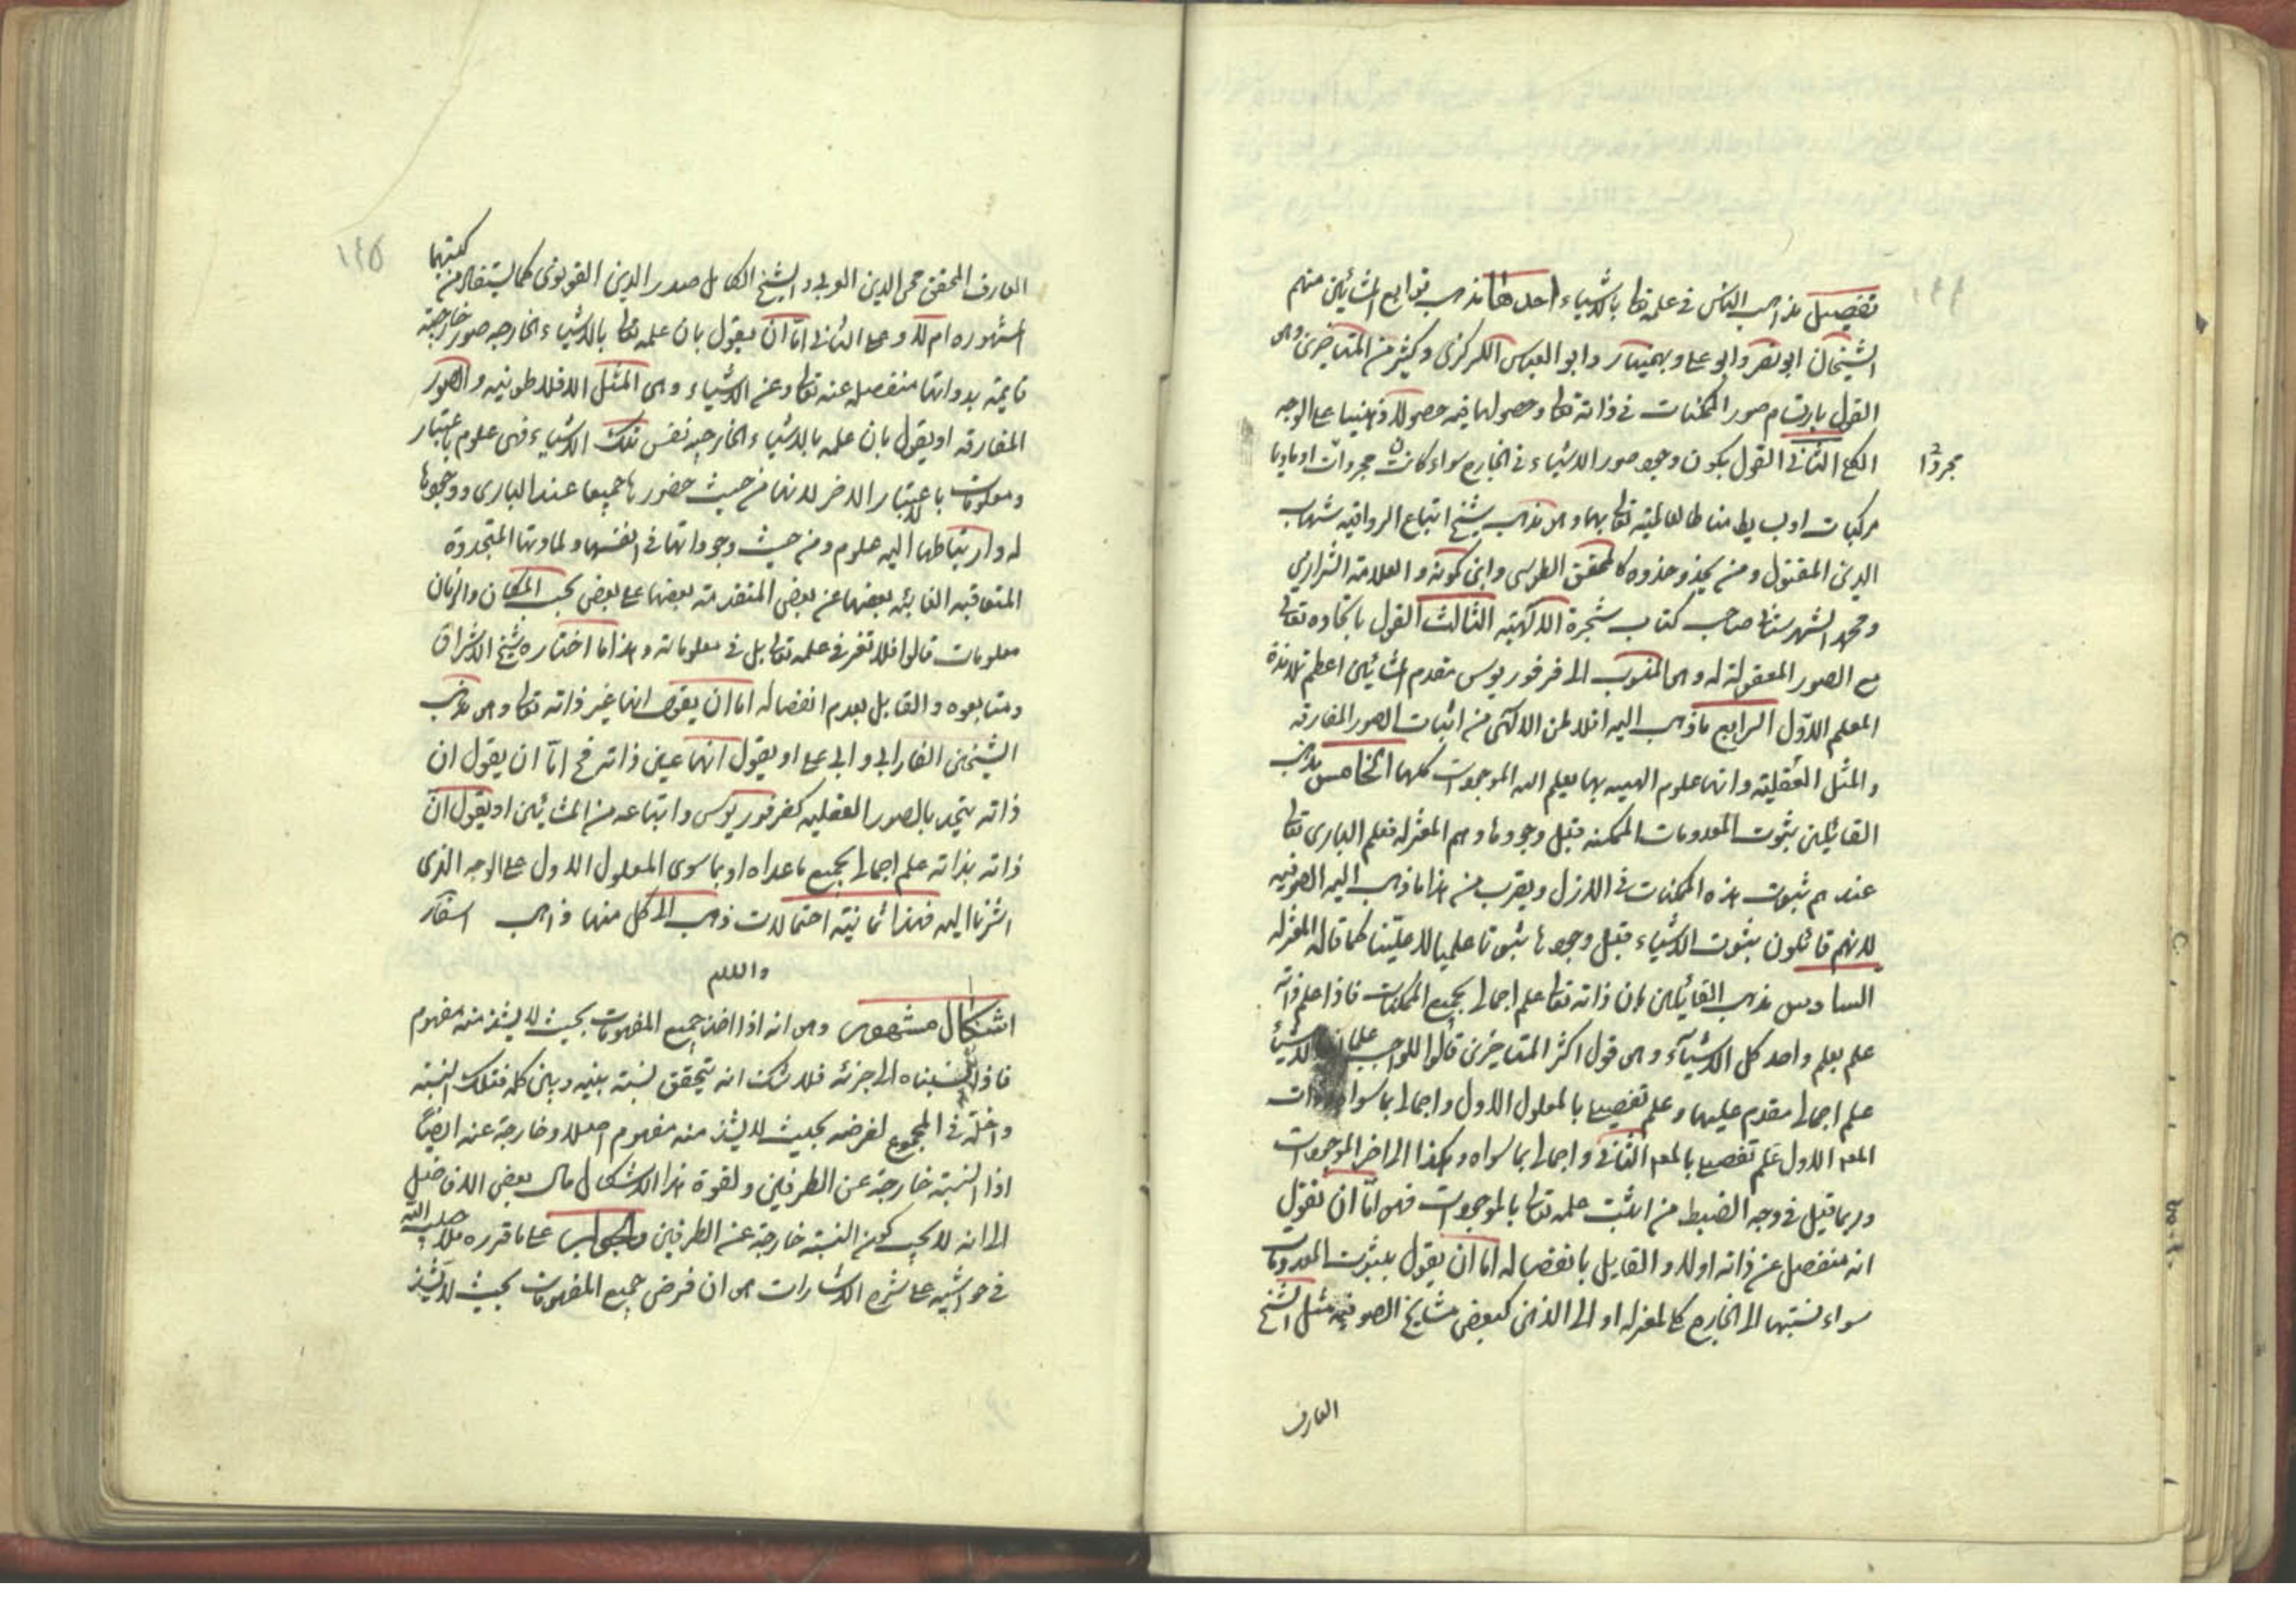 تفصيل مذاهب الناس في علمه تعالى بالاشياء احدها مذهب توابع المشائين منهم
الشيخان ابو نصر وابو على وبهمنيار وابو العباس اللوكرى وكثير من المتاخرين وهى
القول بارتسام صور الممكنات في ذاته تعالى وحصولها فيه حصولا ذهنيا على الوجه
الكلى الثانى القول بكون وجود صور الاشياء في الخارج سواء كانت مجردات او ماديا
مجردا
مركبات او بسايط مناطا لعالميته تعالى بها وهو مذهب شيخ اتباع الرواقيه شهاب
الدين المقتول ومن يحذو حذوه كالمحقق الطوسى وابن كمونه والعلامة الشيرازى
ومحمد الشهرستانى صاحب كتاب شجرة الالهيه الثالث القول باتحاده تعالى
مع الصور المعقولة له وهى المنسوب الى فرفوريوس مقدم المشائين اعظم تلامذة
المعلم الاول الرابع ما ذهب اليه افلاطن الالهى من اثبات الصور المفارقه
والمثل العقلية وانها علوم الهيه بها يعلم الله الموجودات كلها الخامس مذهب
القائلين بثبوت المعدومات الممكنه قبل وجودها وهم المعتزله فعلم البارى تعالى
عندهم ثبوت هذه الممكنات في الازل ويقرب من هذا ما ذهب اليه الصوفيه
لانهم قائلون بثبوت الاشياء قبل وجودها ثبوتا علميا لا عينيا كما قاله المعتزله
السادس مذهب القائلين بان ذاته تعالى علم اجمالى بجميع الممكنات فاذا علم ذاته
علم بعلم واحد كل الاشياء وهو قول اكثر المتاخرين قالوا للواجب علمان بالاشياء
علم اجمالى مقدم عليها وعلم تفصيلى بالمعلول الاول واجمالى بما سواه وذات
المعه الاول علم تفصيلى بالمعه الثانى واجمالى بما سواه وهكذا الى اخر الموجودات
وربما قيل في وجه الضبط من اثبت علمه تعالى بالموجودات فهو اما ان يقول
انه منفصل عن ذاته اولا والقايل بانفصاله اما ان يقول بثبوت المعدومات
سواء نسبتها الى الخارج كالمعتزله او الى الذهن كبعض مشايخ الصوفيه مثل الشيخ
العارف
١٤٥
العارف المحقق محى الدين العربى والشيخ الكامل صدر الدين القونوى كما يستفاد من كتبهما
المشهوره ام لا وعلى الثانى اما ان يقول بان علمه تعالى بالاشياء الخارجه صور خارجية
قايمة بذواتها منفصله عنه تعالى وعن الاشياء وهى المثل الافلاطونيه والصور
المفارقه او يقول بان علمه بالاشياء الخارجيه نفس تلك الاشياء فهى علوم باعتبار
ومعلومات باعتبار الاخر لانها من حيث حضورها جميعا عند البارى ووجودها
له وارتباطها اليه علوم ومن حيث وجوداتها في انفسها ولمادتها المتجددة
المتعاقبه الغايبه بعضها عن بعض المتقدمة بعضها على بعض بحسب المكان والزمان
معلومات قالوا فلا تغير في علمه تعالى بل في معلوماته وهذا ما اختاره شيخ الاشراق
ومتابعوه والقايل بعدم انفصاله اما ان يقول انها غير ذاته تعالى وهو مذهب
الشيخين الفارابى وابى على او يقول انها عين ذاته فح اما ان يقول ان
ذاته يتحد بالصور العقليه كفرفوريوس واتباعه من المشائين او يقول ان
ذاته بذاته علم اجمالى بجميع ما عداه او بما سوى المعلول الاول على الوجه الذى
اشرنا اليه فهذا ثمانية احتمالات ذهب الى كل منها ذاهب اسفار
اشكال مشهور وهو انه اذا اخذ جميع المفهومات بحيث لا يشذ منه مفهوم
فاذا نسبناه الى جزئه فلا شك انه يتحقق نسبة بينه وبين كله فتلك النسبة
داخلة في المجموع لفرضه بحيث لا يشذ منه مفهوم اصلا وخارجة عنه ايضا
اذ النسبة خارجة عن الطرفين ولقوة هذا الاشكال مال بعض الافاضل
الى انه لا يجب كون النسبة خارجة عن الطرفين والجواب على ما قرره
في حواشيه على شرح الاشارات هو ان فرض جميع المفهومات بحيث لا يشذ